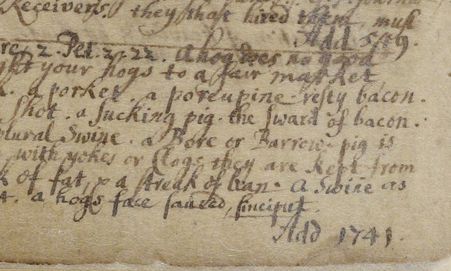 Receivers, they that hired them, must
Add 519.
2. Pet. 2. 22. A hog does no good
your hogs to a fair market
a porket. a porcupine resty bacon.
shot. a sucking pig. the sward of bacon.
plural Swine. a Bore or Barrow-pig is
with yokes or Clogs they are kept from
of fat, & a streak of lean. A Swine as
a hogs face soused, sinciput.
Add 1741.